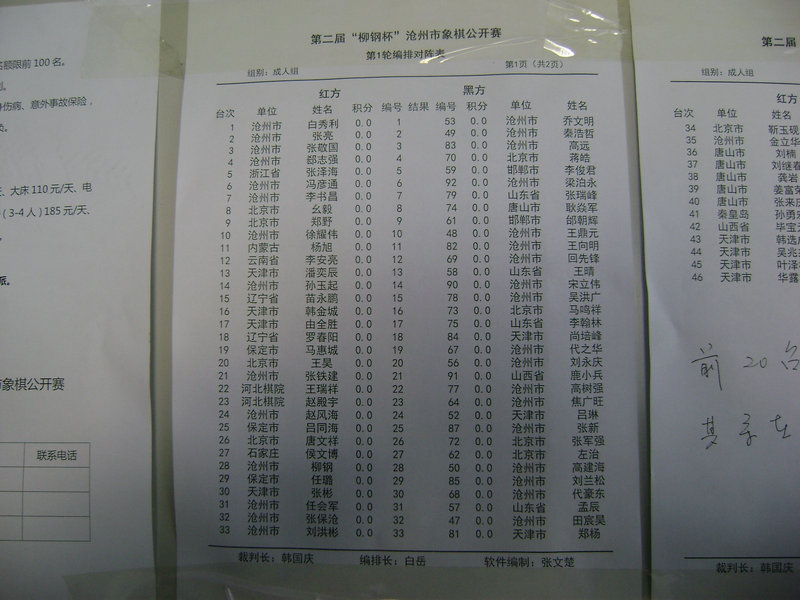 名额限前 100 名。
身伤病、意外事故保险，
大床 110 元/天、电
（3-4 人）185 元/天、
市象棋公开赛
联系电话
第二届“柳钢杯”沧州市象棋公开赛
第1轮编排对阵表
组别：成人组 第1页（共2页）
红方 黑方
台次 单位 姓名 积分 编号 结果 编号 积分 单位 姓名
1 沧州市 白秀利 0.0 1 53 0.0 沧州市 乔文明
2 沧州市 张亮 0.0 2 49 0.0 沧州市 秦浩哲
3 沧州市 张敬国 0.0 3 83 0.0 沧州市 高远
4 沧州市 郄志强 0.0 4 70 0.0 北京市 蒋皓
5 浙江省 张泽海 0.0 5 59 0.0 邯郸市 李俊君
6 沧州市 冯彦通 0.0 6 92 0.0 沧州市 梁泊永
7 沧州市 李书昌 0.0 7 79 0.0 山东省 张瑞峰
8 北京市 幺毅 0.0 8 74 0.0 唐山市 耿焱军
9 北京市 郑野 0.0 9 61 0.0 邯郸市 邰朝辉
10 沧州市 徐耀伟 0.0 10 48 0.0 沧州市 王鼎元
11 内蒙古 杨旭 0.0 11 82 0.0 沧州市 王向明
12 云南省 李安亮 0.0 12 69 0.0 沧州市 回先锋
13 天津市 潘奕辰 0.0 13 58 0.0 山东省 王晴
14 沧州市 孙玉起 0.0 14 90 0.0 沧州市 宋立伟
15 辽宁省 苗永鹏 0.0 15 78 0.0 沧州市 吴洪广
16 天津市 韩金城 0.0 16 73 0.0 北京市 马鸣祥
17 天津市 由全胜 0.0 17 75 0.0 山东省 李翰林
18 辽宁省 罗春阳 0.0 18 84 0.0 天津市 尚培峰
19 保定市 马惠城 0.0 19 67 0.0 沧州市 代之华
20 北京市 王昊 0.0 20 56 0.0 沧州市 刘永庆
21 沧州市 张铁建 0.0 21 91 0.0 山西省 鹿小兵
22 河北棋院 王瑞祥 0.0 22 77 0.0 沧州市 高树强
23 河北棋院 赵殿宇 0.0 23 64 0.0 沧州市 焦广旺
24 沧州市 赵风海 0.0 24 52 0.0 天津市 吕琳
25 保定市 吕同海 0.0 25 87 0.0 沧州市 张新
26 北京市 唐文祥 0.0 26 72 0.0 北京市 张军强
27 石家庄 侯文博 0.0 27 62 0.0 北京市 左治
28 沧州市 柳钢 0.0 28 50 0.0 沧州市 高建海
29 保定市 任璐 0.0 29 85 0.0 沧州市 刘兰松
30 天津市 张彬 0.0 30 68 0.0 沧州市 代豪东
31 沧州市 任会军 0.0 31 57 0.0 山东省 孟辰
32 沧州市 张保沧 0.0 32 47 0.0 沧州市 田宸昊
33 沧州市 刘洪彬 0.0 33 81 0.0 天津市 郑杨
裁判长：韩国庆 编排长：白岳 软件编制：张文楚
第二届
组别：成人组
红方
台次 单位 姓名
34 北京市 靳玉砚
35 沧州市 金立华
36 唐山市 刘楠
37 唐山市 刘继春
38 唐山市 龚岩
39 唐山市 姜富
40 唐山市 张来庆
41 秦皇岛 孙勇
42 山西省 毕宝
43 天津市 韩选
44 天津市 吴兆
45 天津市 叶泽
46 天津市 华露
前 20 名
裁判长：韩国庆